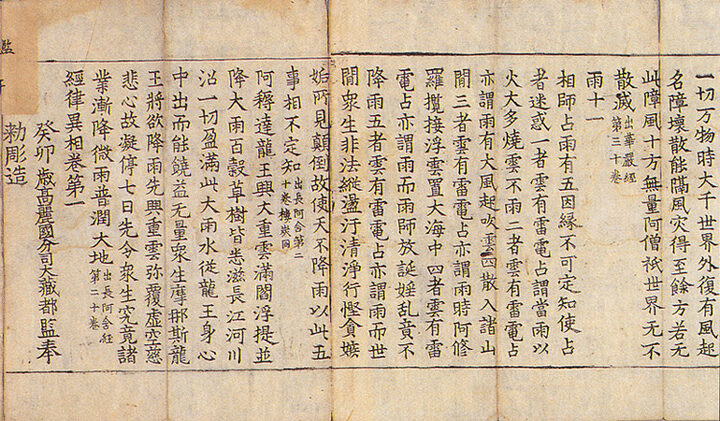 一切万物時大千世界外復有風起
名障壞散能隔風灾得至餘方若无
此障風十方無量阿僧祇世界无不
散滅出華嚴經第三十卷
雨十一
相師占雨有五因緣不可定知使占
者迷惑一者雲有雷電占謂當雨以
火大多燒雲不雨二者雲有雷電占
亦謂雨有大風起吹雲四散入諸山
閒三者雲有雷電占亦謂雨時阿修
羅攬接浮雲置大海中四者雲有雷
電占亦謂雨而雨師放誕婬乱竟不
降雨五者雲有雷電占亦謂雨而世
閒衆生非法縱盪汙清淨行慳貪嫉
妬所見顛倒故使天不降雨以此五
事相不定知出長阿含第二十卷樓炭同
阿耨達龍王興大重雲滿閻浮提並
降大雨百穀草樹皆悉滋長江河川
沼一切盈滿此大雨水從龍王身心
中出而能饒益无量衆生摩那斯龍
王將欲降雨先興重雲弥覆虛空慈
悲心故凝停七日先令衆生究竟諸
業漸降微雨普潤大地出長阿含經第二十卷
經律異相卷第一
癸卯歲高麗國分司大藏都監奉
勑彫造